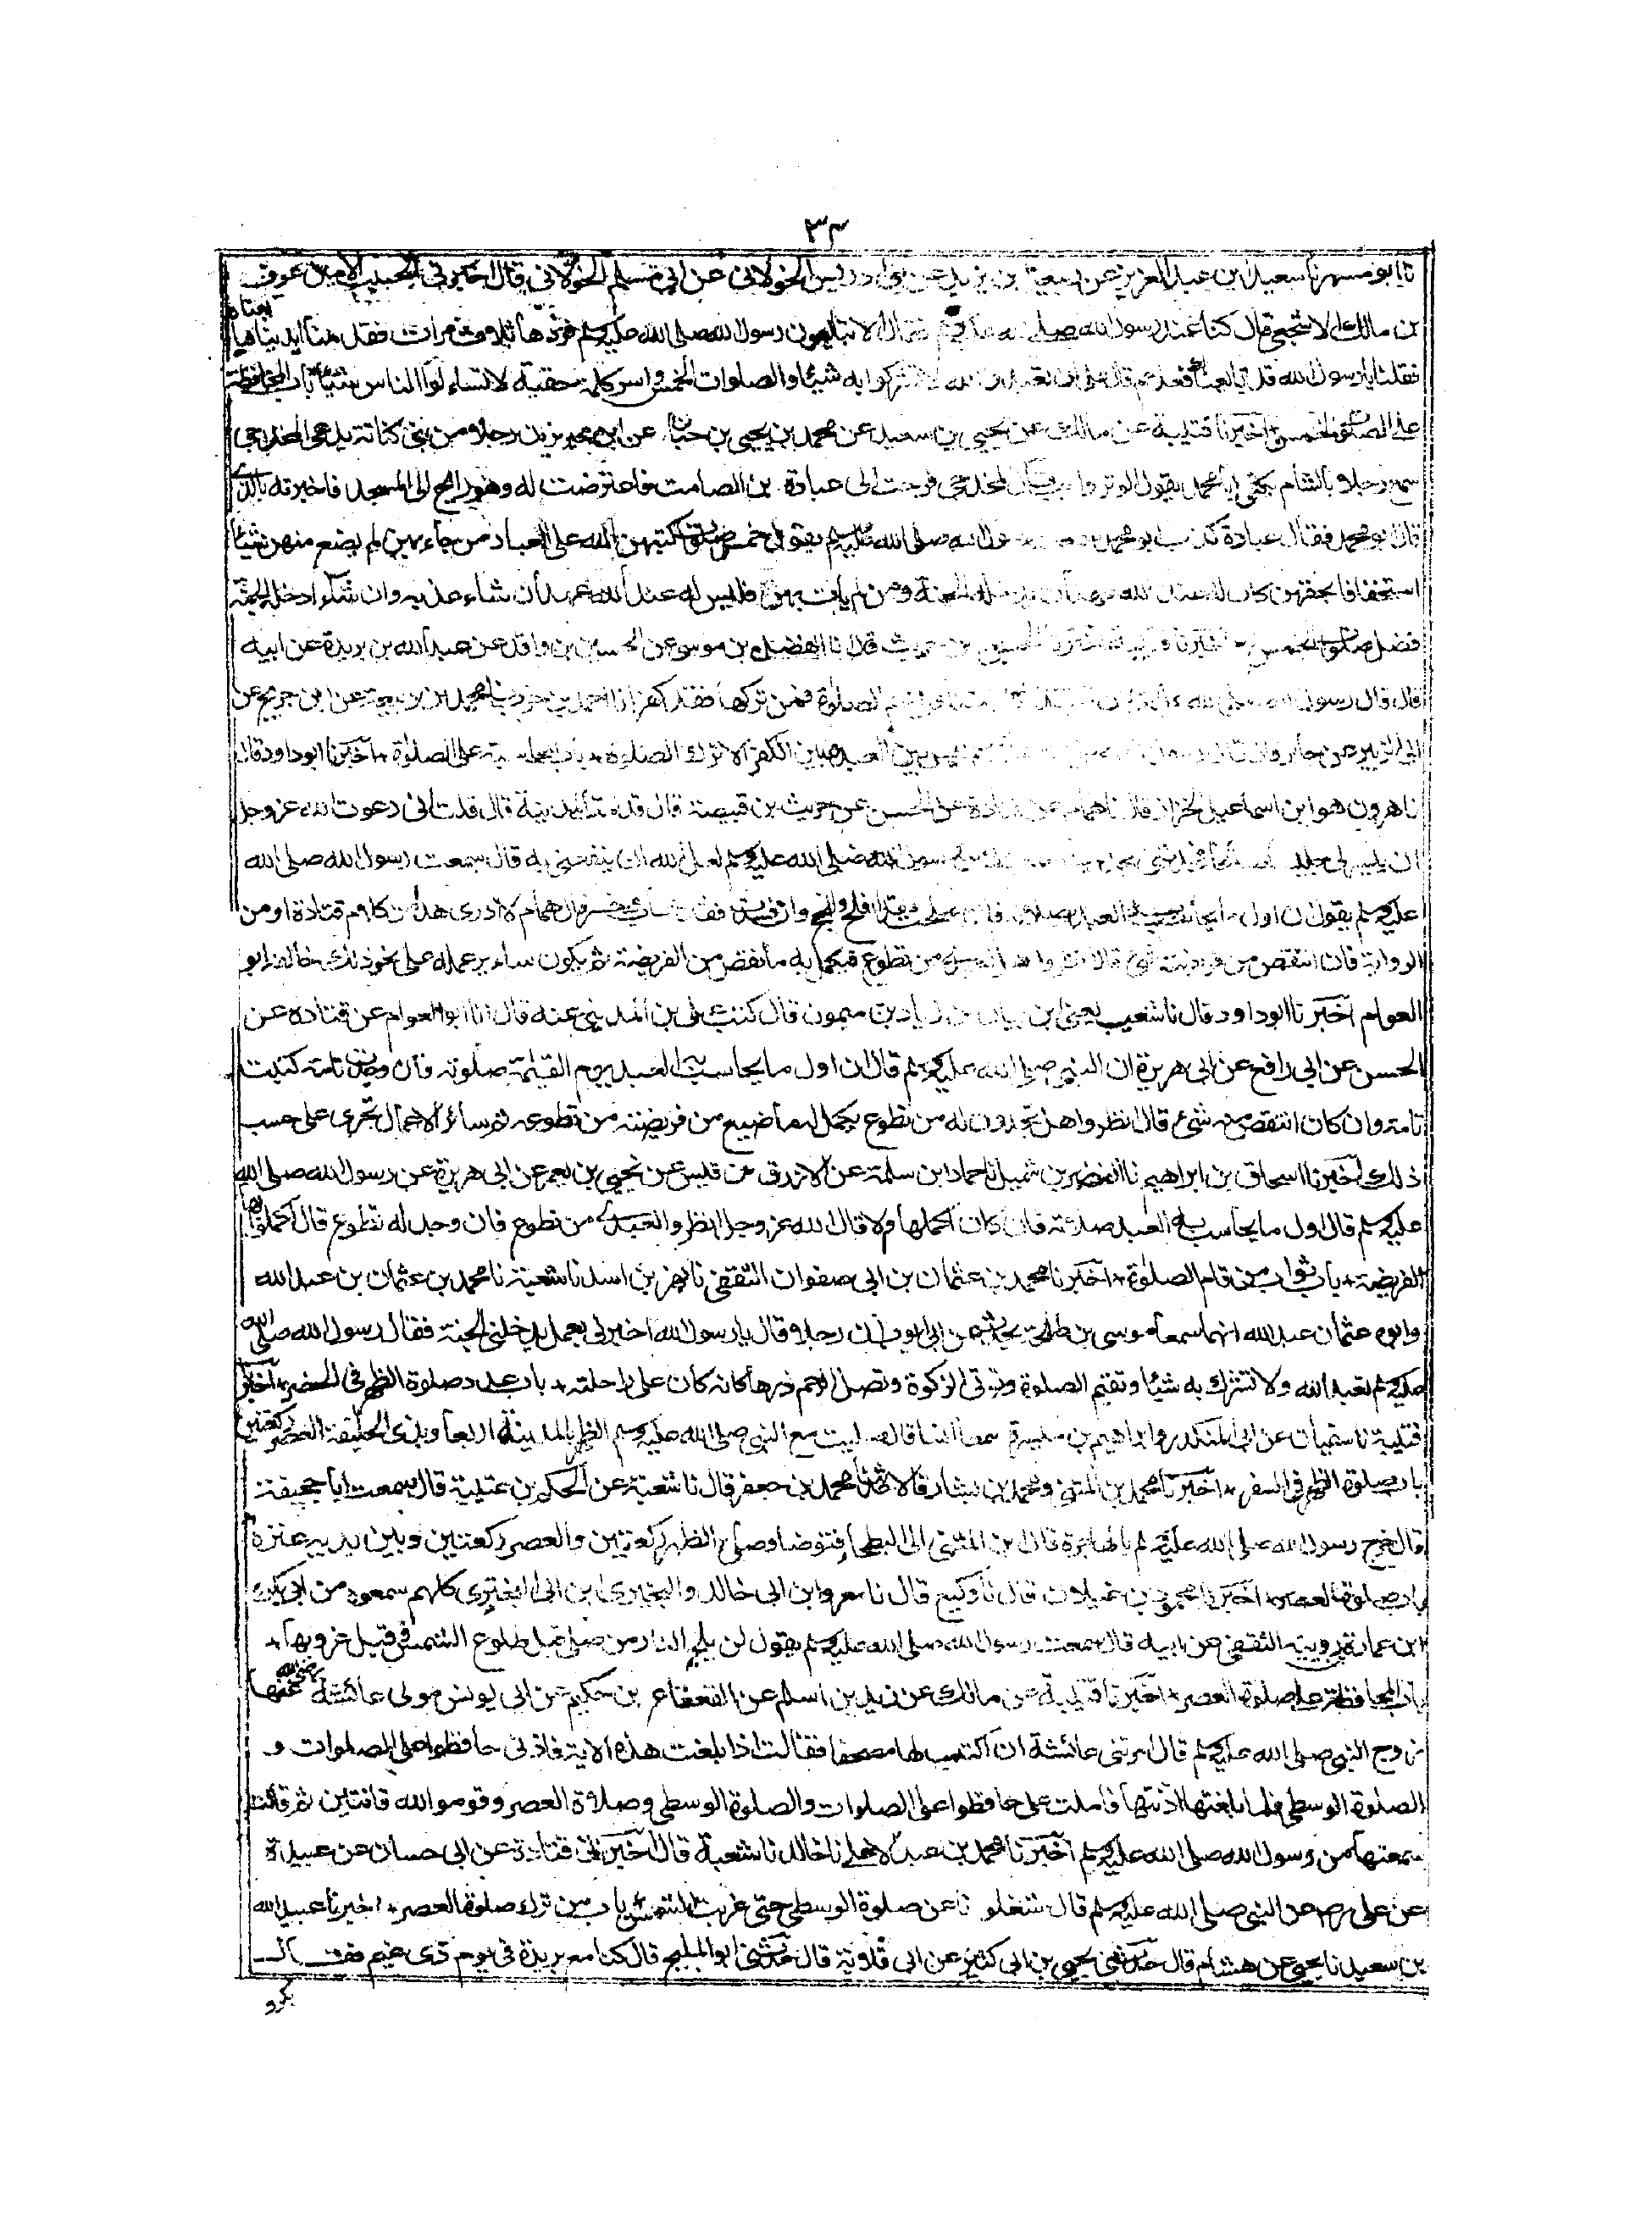 ٣٤
نا ابو مسهر نا سعيد ابن عبد العزيز عن ربيعة بن يزيد عن ابي ادريس الخولانى عن ابى مسلم الخولانى قال اخبرنى الحبيب الامين عوف
بن مالك الاشجعى قال كنا عند رسول الله صلى الله عليه وسلم فقال الا تبايعون رسول الله صلى الله عليه وسلم فردها ثلاث مرات فقد منا ايدينا
فقلنا يا رسول الله قد بايعناك فعلام قال على ان تعبدوا الله ولا تشركوا به شيئا والصلوات الخمس واسر كلمة خفية لا تسئلوا الناس شيئا باب المحافظة
على الصلوات الخمس اخبرنا قتيبة عن مالك عن يحيى بن سعيد عن محمد بن يحيى بن حبان عن ابن محيريز ان رجلا من بنى كنانة يدعى المخدجى
سمع رجلا بالشام يكنى ابا محمد يقول الوتر واجب قال المخدجى فرحت الى عبادة بن الصامت فاعترضت له وهو رائح الى المسجد فاخبرته بالذى
قال ابو محمد فقال عبادة كذب ابو محمد سمعت رسول الله صلى الله عليه وسلم يقول خمس صلوات كتبهن الله على العباد من جاء بهن لم يضع منهن شيئا
استخفافا بحقهن كان له عند الله عهد ان يدخله الجنة ومن لم يأت بهن فليس له عند الله عهد ان شاء عذبه وان شاء ادخله الجنة
فضل صلوات الخمس بن حريث قال نا الفضل بن موسى عن الحسين بن واقد عن عبد الله بن بريدة عن ابيه
قال قال رسول الله صلى الله عليه الصلوة فمن تركها فقد كفر نا احمد بن حرب نا محمد بن ربيعة عن ابن جريج عن
ابى الزبير عن جابر قال قال رسول الله ليس بين العبد وبين الكفر الا ترك الصلوة + باب المحاسبة على الصلوة + اخبرنا ابو داود قال
نا هرون هو ابن اسماعيل الخزاز قال نا همام عن قتادة عن الحسن عن حريث بن قبيصة قال قدمت المدينة قال قلت انى دعوت الله عز وجل
ان ييسر لى جليسا رسول الله صلى الله عليه وسلم لعل الله ان ينفعنى به قال سمعت رسول الله صلى الله
عليه وسلم يقول ان اول ما يحاسب به العبد بصلاته فان صلحت فقد افلح وانجح وان فسدت فقد خاب وخسر قال همام لا ادرى هذا من كلام قتادة او من
الرواية فان انتقص من فريضته شئ قال انظروا من تطوع فيكمل به ما نقص من الفريضة ثم يكون سائر عمله على نحو ذلك خالفه ابو
العوام اخبرنا ابو داود قال نا شعيب يعنى ابن بيان بن زياد بن ميمون قال كتب على بن المدينى عنه قال انا ابو العوام عن قتادة عن
الحسن عن ابى رافع عن ابى هريرة ان النبى صلى الله عليه وسلم قال ان اول ما يحاسب به العبد يوم القيمة صلوته فان وجدت تامة كتبت
تامة وان كان انتقص منه شئ قال انظروا هل تجدون له من تطوع يكمل له ما ضيع من فريضته من تطوعه ثم سائر الاعمال تجرى على حسب
ذلك اخبرنا اسحاق بن ابراهيم نا النضر بن شميل نا حماد ابن سلمة عن الازرق بن قيس عن يحيى بن يعمر عن ابى هريرة عن رسول الله صلى الله
عليه وسلم قال اول ما يحاسب به العبد صلاته فان كان اكملها والا قال الله عز وجل انظروا لعبدى من تطوع فان وجد له تطوع قال اكملوا به
الفريضة + باب ثواب من قام الصلوة + اخبرنا محمد بن عثمان بن ابى صفوان الثقفى نا بهز بن اسد نا شعبة نا محمد بن عثمان بن عبد الله
وابوه عثمان عبد الله انهما سمعا موسى بن طلحة يحدث عن ابى ايوب ان رجلا وقال يا رسول الله اخبرنى بعمل يدخلنى الجنة فقال رسول الله صلى الله
عليه وسلم تعبد الله ولا تشرك به شيئا وتقيم الصلوة وتؤتى الزكوة وتصل الرحم ذرها كانه كان على راحلته + باب عدد صلوة الظهر فى الحضر + اخبرنا
قتيبة نا سفيان عن ابن المنكدر وابراهيم بن ميسرة سمعا انسا قال صليت مع النبى صلى الله عليه وسلم الظهر بالمدينة اربعا وبذى الحليفة العصر ركعتين
باب صلوة الظهر فى السفر + اخبرنا محمد بن المثنى ومحمد بن بشار قالا ثنا محمد بن جعفر قال نا شعبة عن الحكم بن عتيبة قال سمعت ابا جحيفة
قال خرج رسول الله صلى الله عليه وسلم بالهاجرة قال ابن المثنى الى البطحاء فتوضا وصلى الظهر ركعتين والعصر ركعتين وبين يديه عنزة
باب صلوة العصر + اخبرنا محمود بن غيلان قال نا وكيع قال نا مسعر وابن ابى خالد والبخترى ابن ابى البخترى كلهم سمعوه من ابى بكر
ابن عمارة بن رويبة الثقفى عن ابيه قال سمعت رسول الله صلى الله عليه وسلم يقول لن يلج النار من صلى قبل طلوع الشمس وقبل غروبها +
باب المحافظة على صلوة العصر + اخبرنا قتيبة عن مالك عن زيد بن اسلم عن القعقاع بن حكيم عن ابى يونس مولى عائشة رضى الله عنها
زوج النبى صلى الله عليه وسلم قال امرتنى عائشة ان اكتب لها مصحفا فقالت اذا بلغت هذه الاية فاذنى حافظوا على الصلوات و
الصلوة الوسطى فلما بلغتها اذنتها فاملت على حافظوا على الصلوات والصلوة الوسطى وصلاة العصر وقوموا لله قانتين ثم قالت
سمعتها من رسول الله صلى الله عليه وسلم اخبرنا محمد بن عبد الاعلى نا خالد نا شعبة قال اخبرنى قتادة عن ابى حسان عن عبيدة
عن على رضـ عن النبى صلى الله عليه وسلم قال شغلونا عن صلوة الوسطى حتى غربت الشمس باب من ترك صلوة العصر + اخبرنا عبيد الله
بن سعيد نا يحيى عن هشام قال حدثنى يحيى بن ابى كثير عن ابى قلابة قال حدثنى ابو المليح قال كنا مع بريدة فى يوم ذى غيم فقال
بكروا